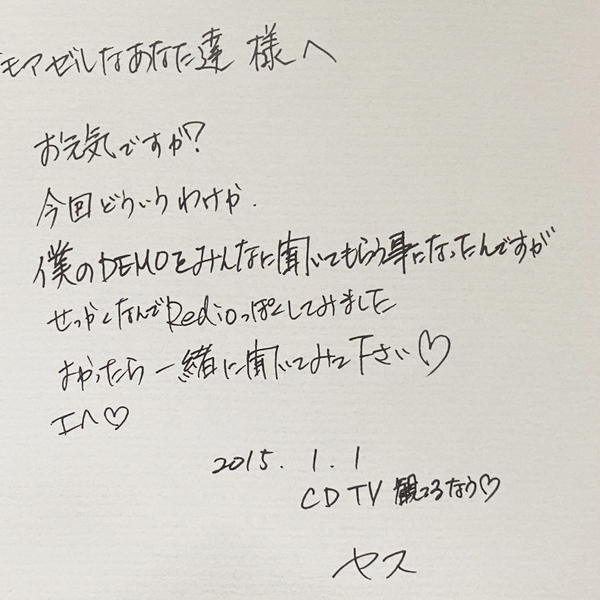 モアゼルなあなた達 様へ
お元気ですか?
今回どういうわけか.
僕のDEMOをみんなに聞いてもらう事になったんですが
せっかくなんでRedioっぽくしてみました
よかったら一緒に聞いてみて下さい♡
エヘ♡
2015. 1. 1
CDTV 観てるなう♡
ヤス